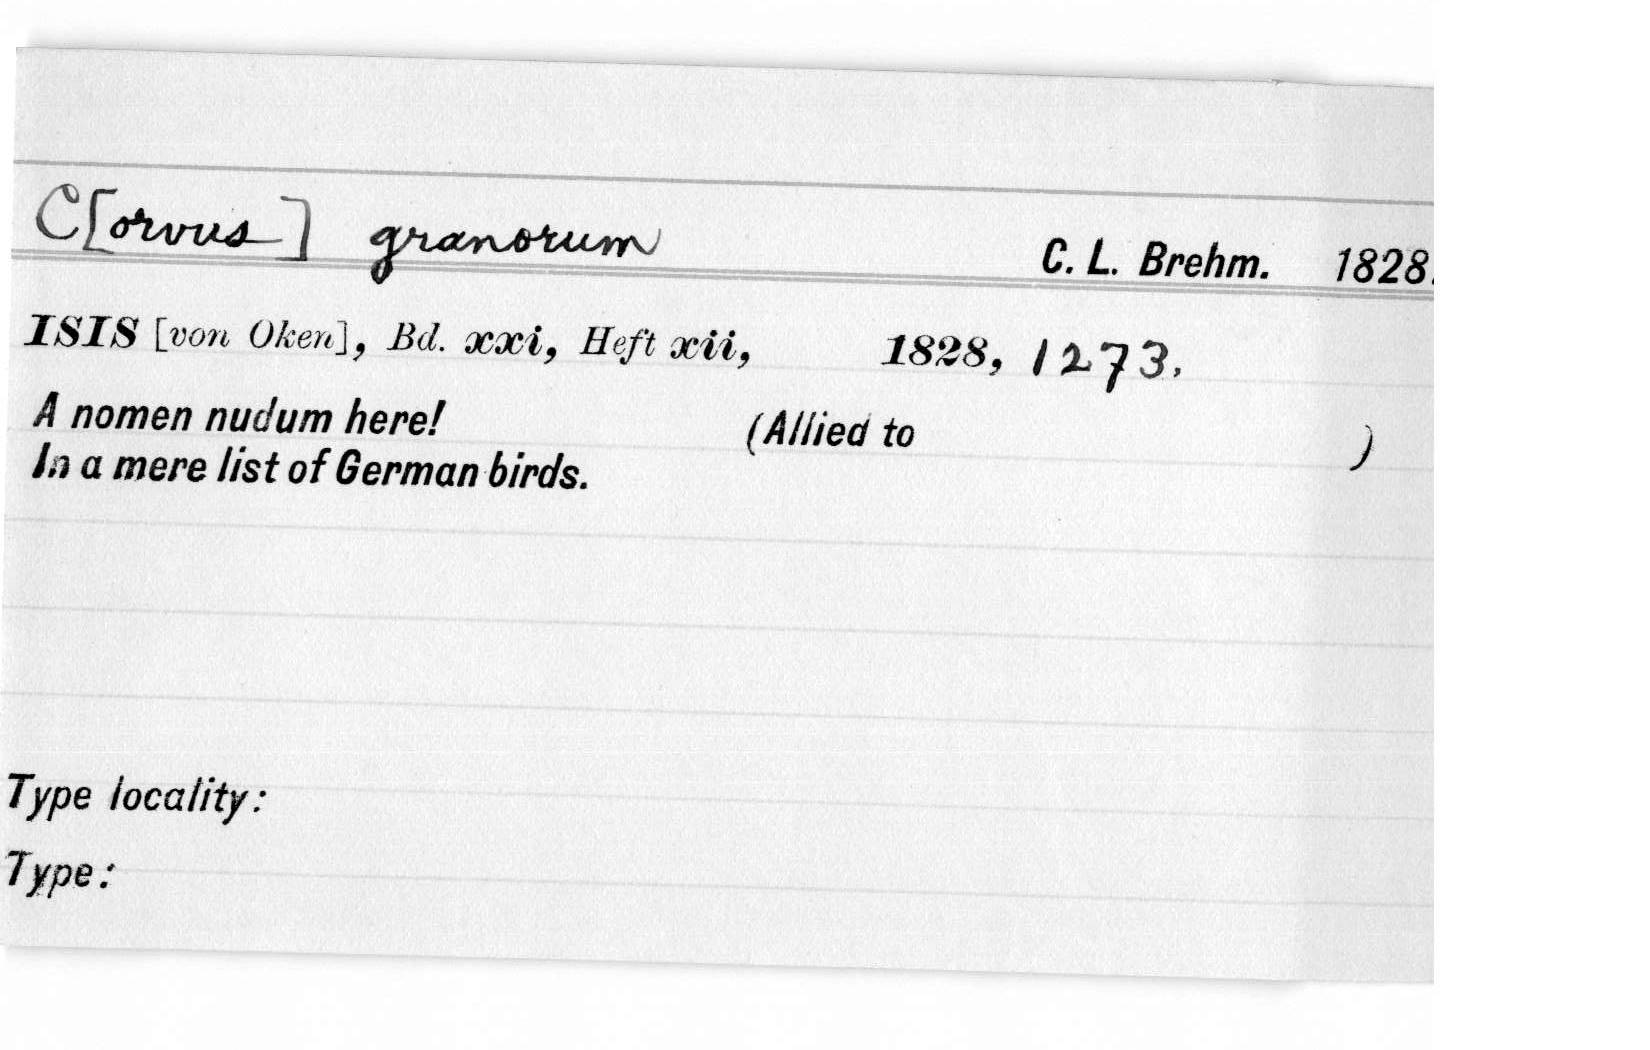 C[orvus] granorum C. L. Brehm. 1828.
ISIS [von Oken], Bd. xxi, Heft xii, 1828, 1273.
A nomen nudum here! (Allied to )
In a mere list of German birds.
Type locality:
Type: